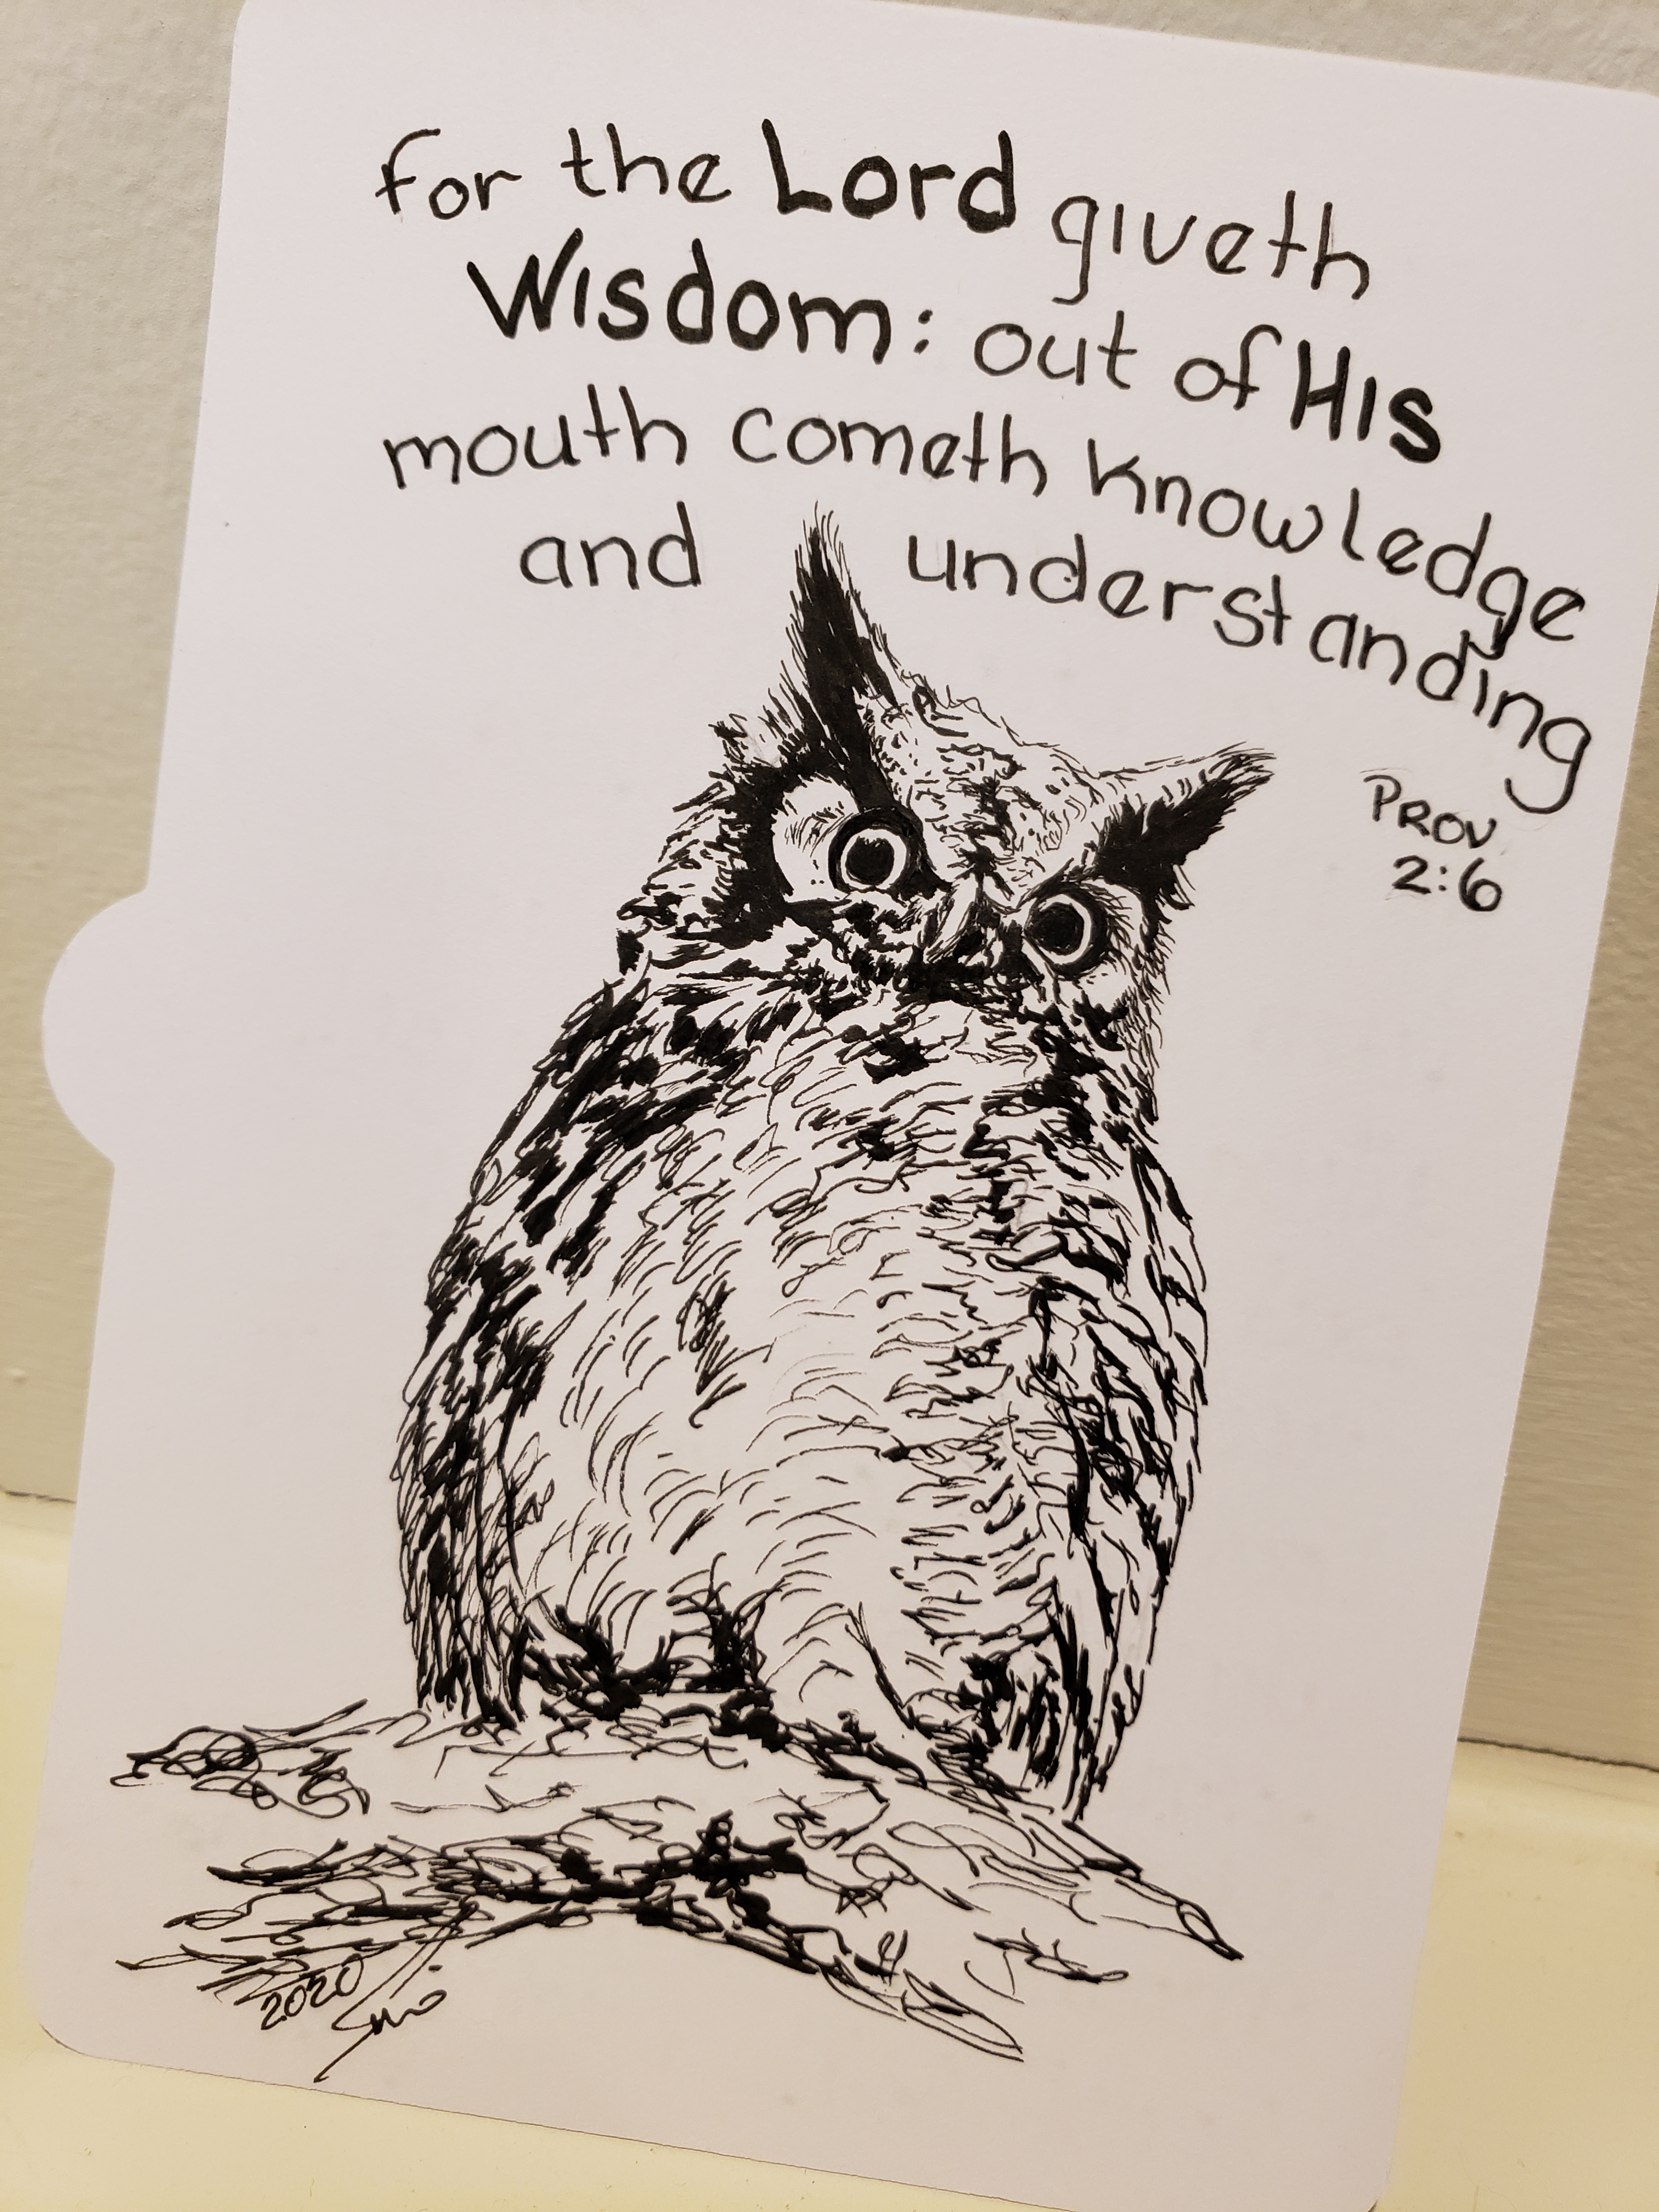 for the Lord giveth
Wisdom: out of His
mouth cometh knowledge
and understanding
PROV
2:6
2020